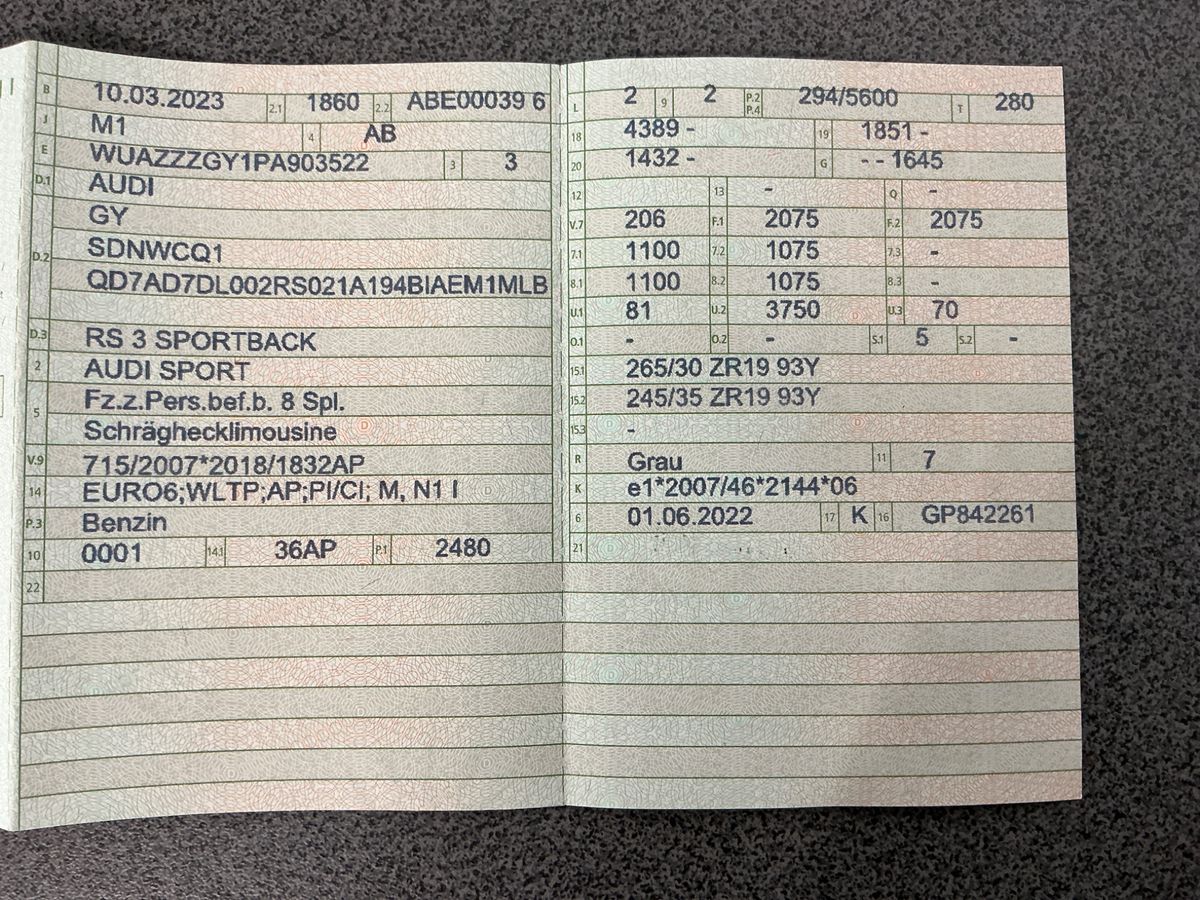 B 10.03.2023 2.1 1860 2.2 ABE00039 6
J M1 4 AB
E WUAZZZGY1PA903522 3 3
D.1 AUDI
GY
D.2 SDNWCQ1
QD7AD7DL002RS021A194BIAEM1MLB
D.3 RS 3 SPORTBACK
2 AUDI SPORT
5 Fz.z.Pers.bef.b. 8 Spl.
Schräghecklimousine
V.9 715/2007*2018/1832AP
14 EURO6;WLTP;AP;PI/CI; M, N1 I
P.3 Benzin
10 0001 14.1 36AP P.1 2480
22
L 2 9 2 P.2 P.4 294/5600 T 280
18 4389 - 19 1851 -
20 1432 - G - - 1645
12 13 - Q -
V.7 206 F.1 2075 F.2 2075
7.1 1100 7.2 1075 7.3 -
8.1 1100 8.2 1075 8.3 -
U.1 81 U.2 3750 U.3 70
O.1 - O.2 - S.1 5 S.2 -
15.1 265/30 ZR19 93Y
15.2 245/35 ZR19 93Y
15.3 -
R Grau 11 7
K e1*2007/46*2144*06
6 01.06.2022 17 K 16 GP842261
21